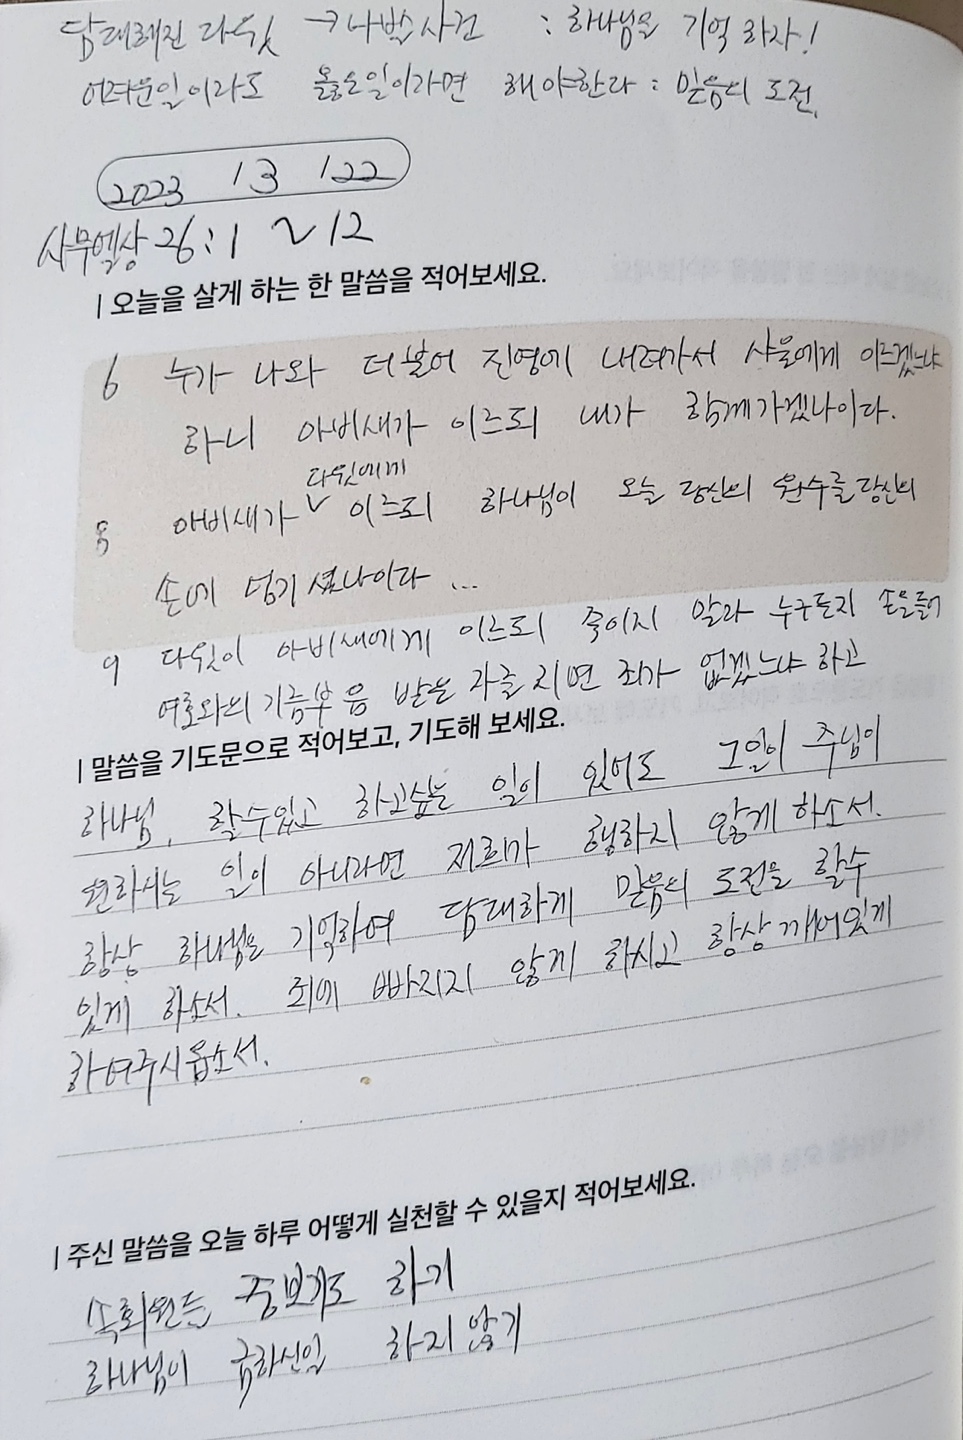 담대해진 다윗 → 나발사건 : 하나님을 기억하자!
어려운일이라도 옳은일이라면 해야한다 : 믿음의 도전.
2023 / 3 / 22
사무엘상 26 : 1 ~ 12
| 오늘을 살게 하는 한 말씀을 적어보세요.
6 누가 나와 더불어 진영에 내려가서 사울에게 이르겠느냐
하니 아비새가 이르되 내가 함께가겠나이다.
다윗에게
8 아비새가 ∨ 이르되 하나님이 오늘 당신의 원수를 당신의
손에 넘기셨나이다 ...
9 다윗이 아비새에게 이르되 죽이지 말라 누구든지 손을들어
여호와의 기름부음 받는 자를 치면 죄가 없겠느냐 하고
| 말씀을 기도문으로 적어보고, 기도해 보세요.
하나님, 할수있고 하고싶은 일이 있어도 그일이 주님이
원하시는 일이 아니라면 저희가 행하지 않게 하소서.
항상 하나님을 기억하여 담대하게 믿음의 도전을 할수
있게 하소서. 죄에 빠지지 않게 하시고 항상 깨어있게
하여주시옵소서.
| 주신 말씀을 오늘 하루 어떻게 실천할 수 있을지 적어보세요.
속회원들 중보기도 하기
하나님이 금하신일 하지 않기